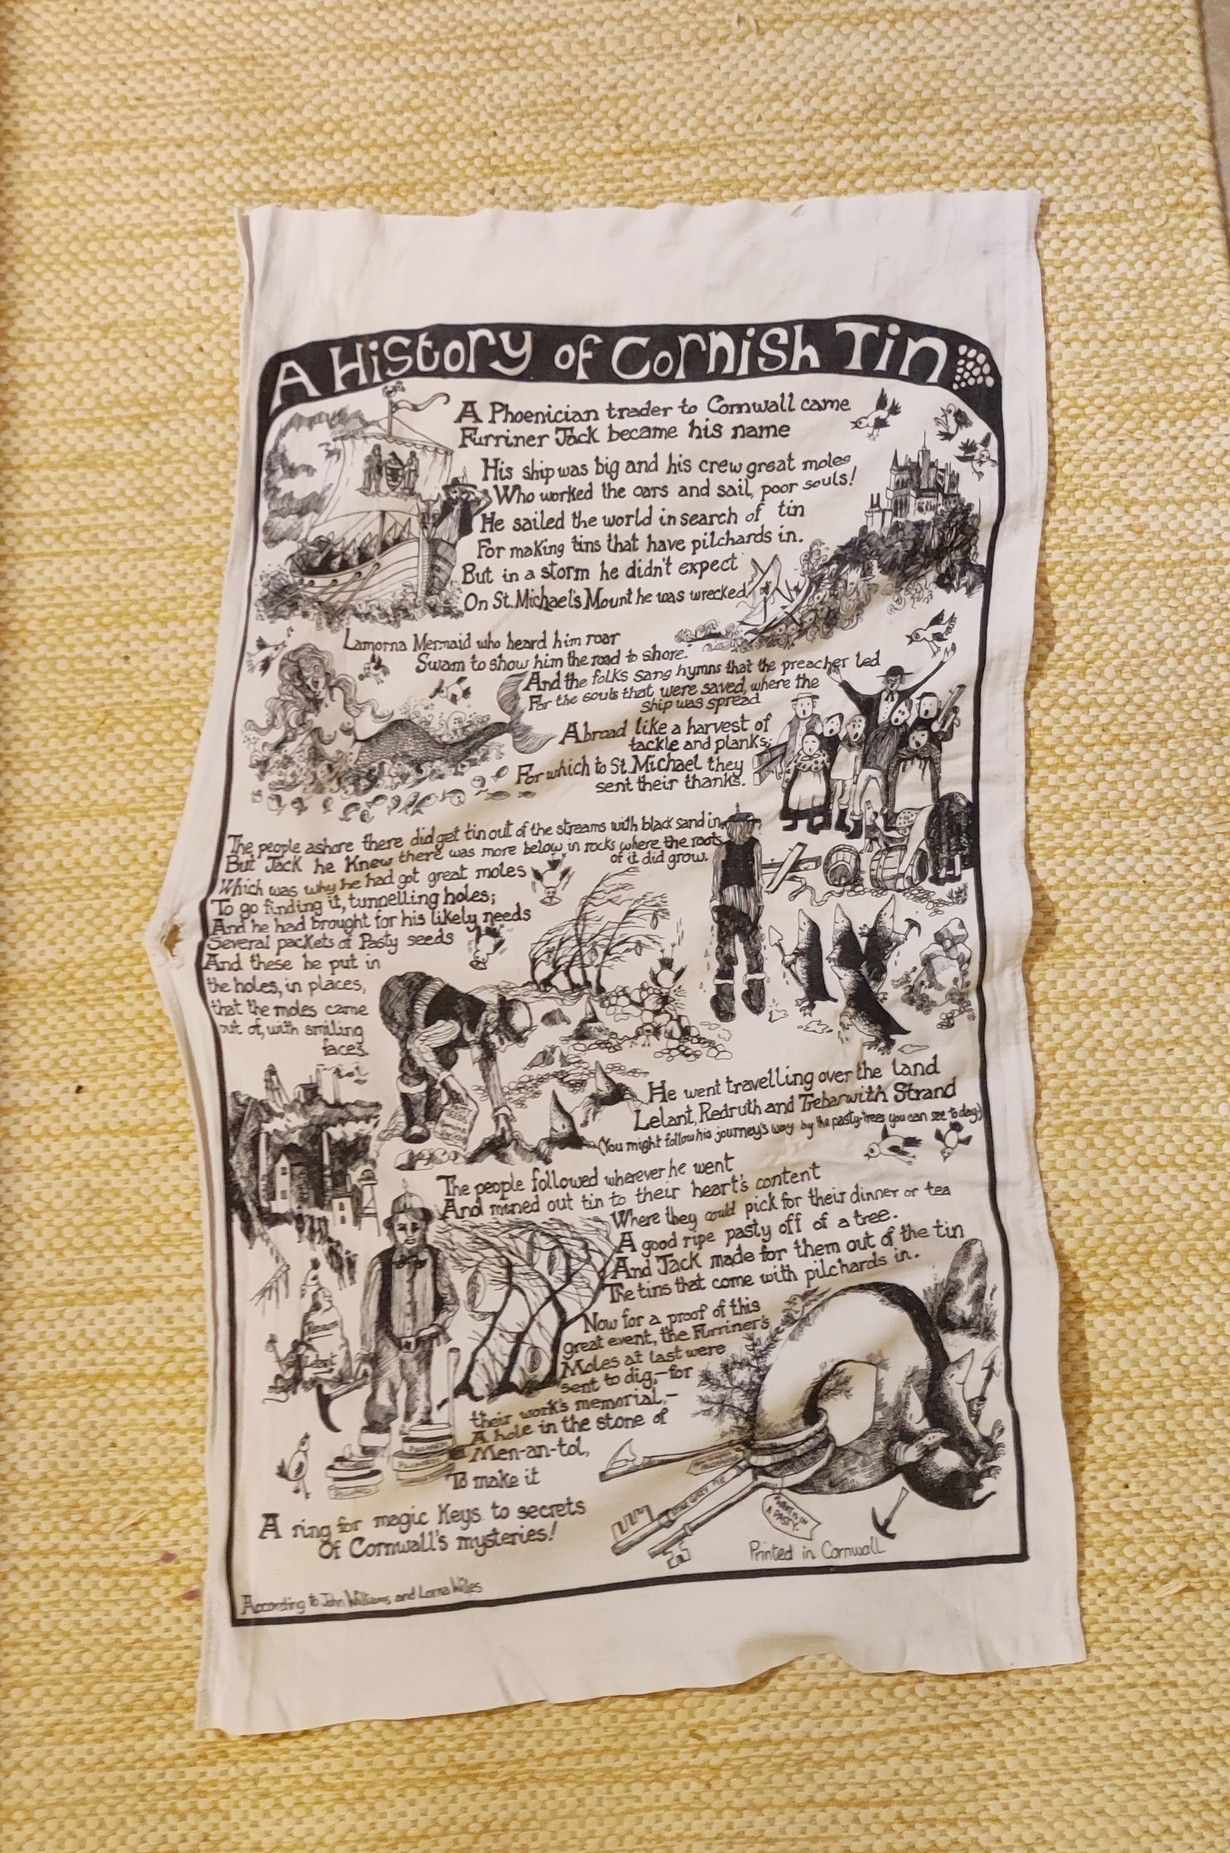 A History of Cornish Tin
A Phoenician trader to Cornwall came
Furriner Jack became his name
His ship was big and his crew great moles
Who worked the oars and sail, poor souls!
He sailed the world in search of tin
For making tins that have pilchards in.
But in a storm he didn't expect
On St. Michael's Mount he was wrecked
Lamorna Mermaid who heard him roar
Swam to show him the road to shore.
And the folks sang hymns that the preacher led
For the souls that were saved, where the
ship was spread
Abroad like a harvest of
tackle and planks;
For which to St Michael they
sent their thanks.
The people ashore there did get tin out of the streams with black sand in,
But Jack he Knew there was more below in rocks where the roots
of it did grow.
Which was why he had got great moles
To go finding it, tunnelling holes;
And he had brought for his likely needs
Several packets of Pasty seeds
And these he put in
the holes, in places,
that the moles came
out of, with smiling
faces.
He went travelling over the land
Lelant, Redruth and Trebarwith Strand
(You might follow his journey's way by the pasty-trees you can see to day)
The people followed wherever he went
And mined out tin to their heart's content
Where they could pick for their dinner or tea
A good ripe pasty off of a tree.
And Jack made for them out of the tin
The tins that come with pilchards in.
Now for a proof of this
great event, the Furriner's
Moles at last were
sent to dig,-for
their work's memorial,-
A hole in the stone of
Men-an-tol,
To make it
A ring for magic Keys to secrets
Of Cornwall's mysteries!
WHAT IS IN
A PASTY
Printed in Cornwall
According to John Williams and Lorna Wiles